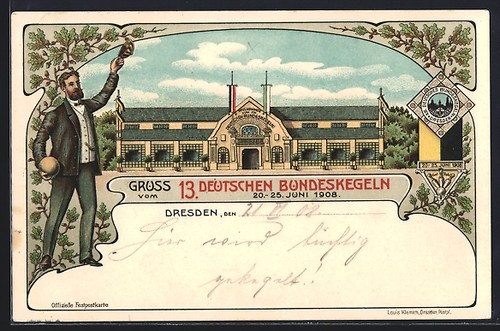 GRUSS VOM 13. DEUTSCHEN BUNDESKEGELN
20.-25. JUNI 1908.
DRESDEN, DEN 21 VI 08
Hier wird tüchtig
gekegelt!
20.-25. JUNI 1908
Offizielle Festpostkarte
Louis Klemich, Dresden, Postpl.